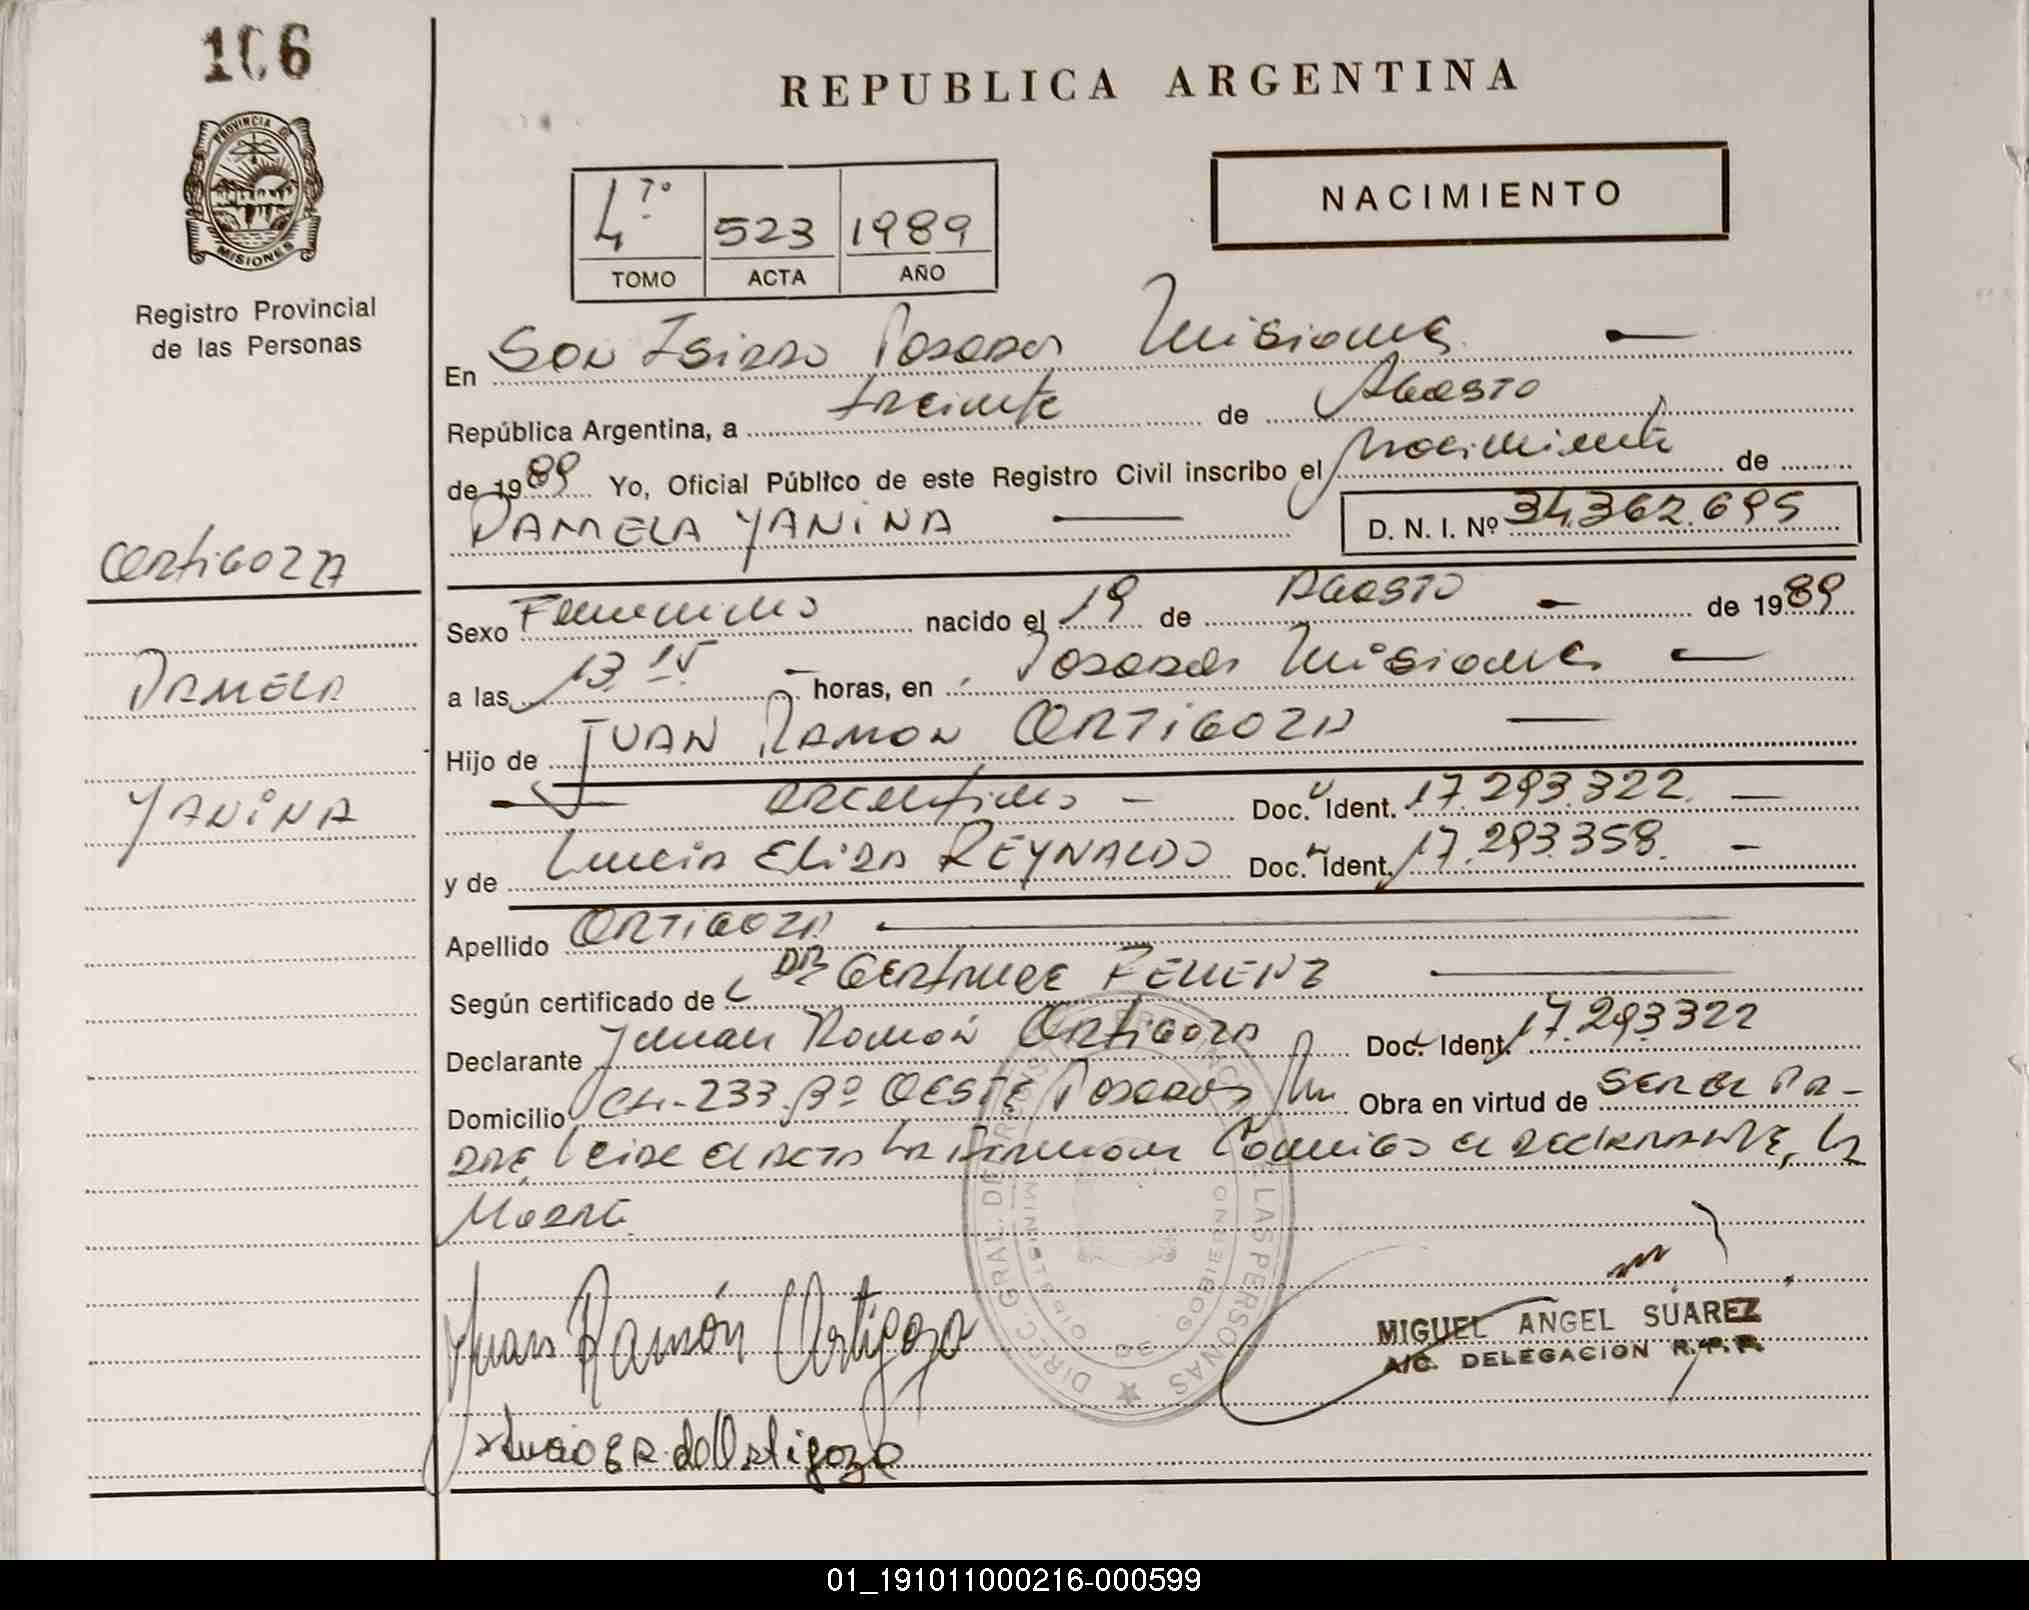 106
PROVINCIA DE
MISIONES
Registro Provincial
de las Personas
REPUBLICA ARGENTINA
4to 523 1989
TOMO ACTA AÑO
NACIMIENTO
En San Isidro Posadas Misiones
República Argentina, a treinte de Agosto
de 1989 Yo, Oficial Público de este Registro Civil inscribo el Nacimiento de
PAMELA YANINA D. N. I. Nº 34.362.695
ORTIGOZA
PAMELA
YANINA
Sexo Femenino nacido el 19 de Agosto de 1989
a las 13.15 horas, en Posadas Misiones
Hijo de JUAN RAMON ORTIGOZA
argentino Doc. Ident. 17.293.322
y de Lucia Elisa REYNALDO Doc. Ident. 17.293.358
Apellido ORTIGOZA
Según certificado de DRA Gertrude
Declarante Juan Ramón Ortigoza Doc. Ident. 17.293322
Domicilio CH. 233 Bº OESTE Posadas Mn Obra en virtud de SER EL PA-
DRE Leida el acta la firman Conmigo el declarante, la
Madre
Juan Ramón Ortigoza
MIGUEL ANGEL SUAREZ
A/C. DELEGACION R.P.P.
DIREC. GRAL. DEL REGISTRO PROVINCIAL DE LAS PERSONAS
MINISTERIO DE GOBIERNO
01_191011000216-000599